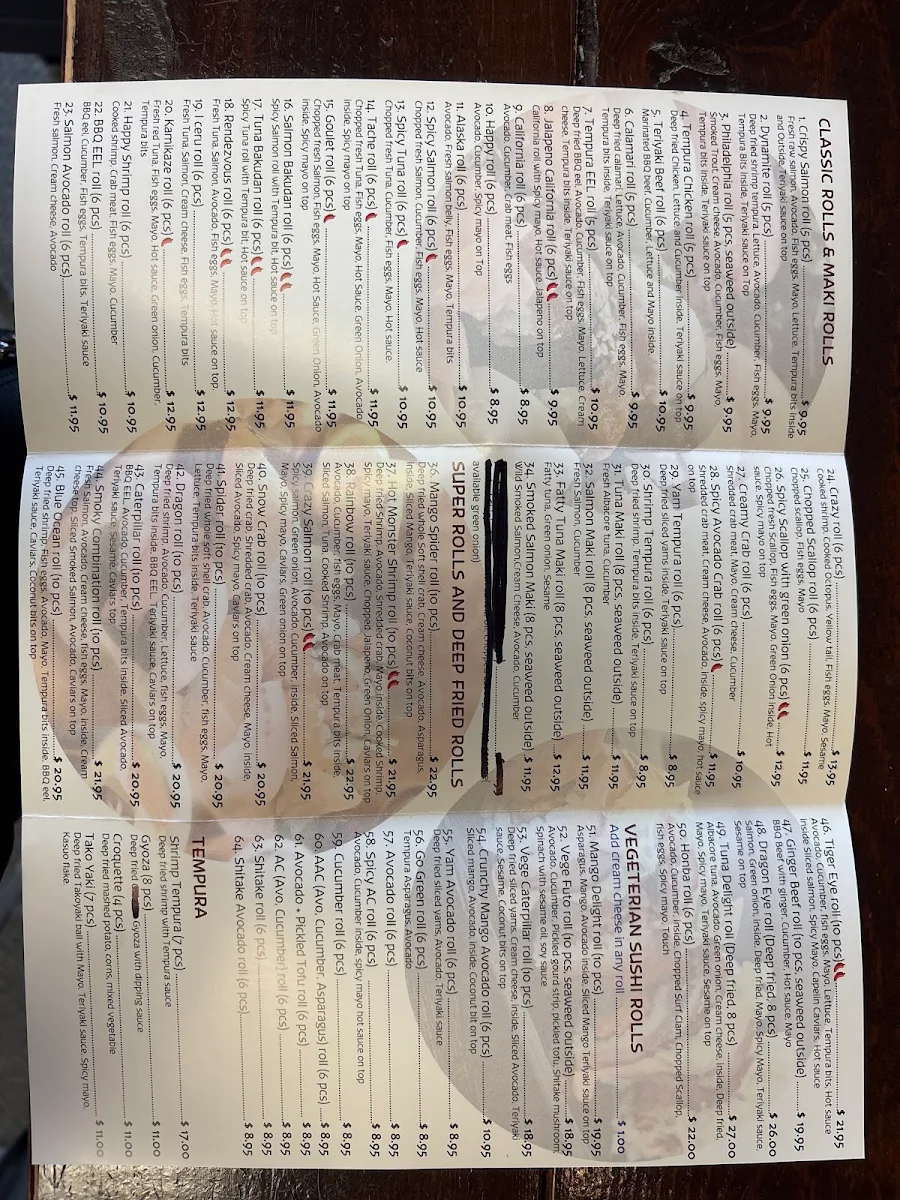 CLASSIC ROLLS & MAKI ROLLS
1. Crispy Salmon roll (5 pcs) $ 9.95
Fresh raw salmon, Avocado, Fish eggs, Mayo, Lettuce, Tempura bits inside
and outside, Teriyaki sauce on top
2. Dynamite roll (5 pcs) $ 9.95
Deep fried shrimp tempura, Lettuce, Avocado, Cucumber, Fish eggs, Mayo,
Tempura Bits inside, Teriyaki sauce on Top
3. Philadelphia roll (5 pcs, seaweed outside) $ 9.95
Smoked Trout, Cream cheese, Avocado, Cucumber, Fish eggs, Mayo,
Tempura bits inside, Teriyaki sauce on top
4. Tempura Chicken roll (5 pcs) $ 9.95
Deep fried Chicken, Lettuce and Cucumber inside, Teriyaki sauce on top
5. Teriyaki Beef roll (5 pcs) $ 10.95
Marinated BBQ beef, Cucumber, Lettuce and Mayo inside.
6. Calamari roll (5 pcs) $ 9.95
Deep fried calamari, Lettuce, Avocado, Cucumber, Fish eggs, Mayo,
Tempura bits inside, Teriyaki sauce on top
7. Tempura EEL roll (5 pcs) $ 10.95
Deep fried BBQ eel, Avocado, Cucumber, Fish eggs, Mayo, Lettuce, Cream
cheese, Tempura bits inside, Teriyaki sauce on top
8. Jalapeno California roll (6 pcs) $ 9.95
California roll with Spicy mayo, Hot sauce, Jalapeno on top
9. California roll (6 pcs) $ 8.95
Avocado, Cucumber, Crab meat, Fish eggs
10. Happy roll (6 pcs) $ 8.95
Avocado, Cucumber, Spicy mayo on Top
11. Alaska roll (6 pcs) $ 10.95
Avocado, Fresh salmon belly, Fish eggs, Mayo, Tempura bits
12. Spicy Salmon roll (6 pcs) $ 10.95
Chopped fresh Salmon, Cucumber, Fish eggs, Mayo, Hot sauce
13. Spicy Tuna roll (6 pcs) $ 10.95
Chopped fresh Tuna, Cucumber, Fish eggs, Mayo, Hot sauce
14. Tache roll (6 pcs) $ 11.95
Chopped fresh Tuna, Fish eggs, Mayo, Hot Sauce, Green Onion, Avocado
inside, Spicy mayo on top
15. Goulet roll (6 pcs) $ 11.95
Chopped fresh Salmon, Fish eggs, Mayo, Hot Sauce, Green Onion, Avocado
inside, Spicy mayo on top
16. Salmon Bakudan roll (6 pcs) $ 11.95
Spicy Salmon roll with Tempura bit, Hot sauce on top
17. Tuna Bakudan roll (6 pcs) $ 11.95
Spicy Tuna roll with Tempura bit, Hot sauce on top
18. Rendezvous roll (6 pcs) $ 12.95
Fresh Tuna, Salmon, Avocado, Fish eggs, Mayo, Hot sauce on top
19. I ceru roll (6 pcs) $ 12.95
Fresh Tuna, Salmon, Cream cheese, Fish eggs, Tempura bits
20. Kamikaze roll (6 pcs) $ 12.95
Fresh red Tuna, Fish eggs, Mayo, Hot sauce, Green onion, Cucumber,
Tempura bits
21. Happy Shrimp roll (6 pcs) $ 10.95
Cooked shrimp, Crab meat, Fish eggs, Mayo, Cucumber
22. BBQ EEL roll (6 pcs) $ 10.95
BBQ eel, Cucumber, Fish eggs, Tempura bits, Teriyaki sauce
23. Salmon Avocado roll (6 pcs) $ 11.95
Fresh salmon, Cream cheese, Avocado
24. Crazy roll (6 pcs) $ 13.95
Cooked shrimp, Sliced Octopus, Yellow tail, Fish eggs, Mayo, Sesame
25. Chopped Scallop roll (6 pcs) $ 11.95
Chopped fresh Scallop, Fish eggs, Mayo
26. Spicy Scallop with green onion (6 pcs) $ 12.95
Chopped fresh Scallop, Fish eggs, Mayo, Green Onion inside, Hot
sauce, Spicy mayo on top
27. Creamy Crab roll (6 pcs) $ 10.95
Shredded crab meat, Mayo, Cream cheese, Cucumber
28. Spicy Avocado Crab roll (6 pcs) $ 11.95
Shredded crab meat, Cream cheese, Avocado, inside, spicy mayo hot sauce
on top
29. Yam Tempura roll (6 pcs) $ 8.95
Deep fried sliced yams inside, Teriyaki sauce on top
30. Shrimp Tempura roll (6 pcs) $ 8.95
Deep fried shrimp, Tempura bits inside, Teriyaki sauce on top
31. Tuna Maki roll (8 pcs, seaweed outside) $ 11.95
Fresh Albacore tuna, Cucumber
32. Salmon Maki roll (8 pcs, seaweed outside) $ 11.95
Fresh Salmon, Cucumber
33. Fatty Tuna Maki roll (8 pcs, seaweed outside) $ 12.95
Fatty tuna, Green onion, Sesame
34. Smoked Salmon Maki (8 pcs, seaweed outside) $ 11.95
Wild Smoked Salmon, Cream cheese, Avocado, Cucumber
available green onion)
SUPER ROLLS AND DEEP FRIED ROLLS
36. Mango Spider roll (10 pcs) $ 22.95
Deep fried whole Soft shell crab, Cream cheese, Avocado, Asparagus,
inside, Sliced Mango, Teriyaki sauce, Coconut bits on top
37. Hot Monster Shrimp roll (10 pcs) $ 21.95
Deep fried shrimp, Avocado, Shredded crab, Mayo inside, Cooked Shrimp,
Spicy mayo, Teriyaki sauce, Chopped Jalapeno, Green Onion, Caviars on top
38. Rainbow roll (10 pcs) $ 22.95
Avocado, Cucumber, fish eggs, Mayo, Crab meat, Tempura bits inside,
Sliced Salmon, Tuna, Cooked Shrimp, Avocado on top
39. Crazy Salmon roll (10 pcs) $ 21.95
Spicy salmon, Green onion, Avocado, Cucumber, inside, Sliced Salmon,
Mayo, Spicy mayo, Caviars, Green onion on top
40. Snow Crab roll (10 pcs) $ 20.95
Deep fried crab, Shredded crab, Avocado, Cream cheese, Mayo, inside,
Sliced Avocado, Spicy mayo, Caviars on top
41. Spider roll (10 pcs) $ 20.95
Deep fried whole soft shell crab, Avocado, Cucumber, fish eggs, Mayo,
Lettuce, Tempura bits inside, Teriyaki sauce
42. Dragon roll (10 pcs) $ 20.95
Deep fried shrimp, Avocado, Cucumber, Lettuce, fish eggs, Mayo,
Tempura bits inside, BBQ EEL, Teriyaki sauce, Caviars on top
43. Caterpillar roll (10 pcs) $ 20.95
BBQ EEL, Avocado, Cucumber, Tempura bits inside, Sliced Avocado,
Teriyaki sauce, Sesame, Caviars on top
44. Smoky Combination roll (10 pcs) $ 21.95
Fresh Salmon, Avocado, Cream cheese, fish eggs, Mayo, inside, Cream
cheese, Sliced Smoked Salmon, Avocado, Caviars on top
45. Blue Ocean roll (10 pcs) $ 20.95
Deep fried shrimp, Fish eggs, Avocado, Mayo, Tempura bits inside, BBQ eel,
Teriyaki sauce, Caviars, Coconut bits on top
46. Tiger Eye roll (10 pcs) $ 21.95
Avocado, Cucumber, fish eggs, Mayo, Lettuce, Tempura bits, Hot sauce
inside, Sliced salmon, Spicy Mayo, Capelin Caviars, Hot sauce
47. Ginger Beef roll (10 pcs, seaweed outside) $ 19.95
BBQ Beef with ginger, Cucumber, Hot sauce, Mayo
48. Dragon Eye roll (Deep fried, 8 pcs) $ 26.00
Salmon, Green Onion, inside, Deep fried, Mayo, Spicy Mayo, Teriyaki sauce,
Sesame on top
49. Tuna Delight roll (Deep fried, 8 pcs) $ 27.00
Albacore tuna, Avocado, Green onion, Cream cheese, inside, Deep fried,
Mayo, Spicy mayo, Teriyaki sauce, Sesame on top
50. Samba roll (6 pcs) $ 22.00
Avocado, Cucumber, inside, Chopped Surf Clam, Chopped Scallop,
fish eggs, Spicy mayo, Touch
VEGETERIAN SUSHI ROLLS
Add cream cheese in any roll $ 1.00
51. Mango Delight roll (10 pcs) $ 19.95
Asparagus, Mango, Avocado inside, Sliced Mango Teriyaki sauce on top
52. Vege Futo roll (10 pcs, seaweed outside) $ 18.95
Avocado, Cucumber, Pickled gourd strip, pickled tofu, Shitake mushroom,
Spinach with sesame oil, soy sauce
53. Vege Caterpillar roll (10 pcs) $ 18.95
Deep fried sliced yams, Cream cheese, inside, Sliced Avocado, Teriyaki
sauce, Sesame, Coconut bits on top
54. Crunchy Mango Avocado roll (6 pcs) $ 10.95
Sliced mango, Avocado inside, Coconut bit on top
55. Yam Avocado roll (6 pcs) $ 8.95
Deep fried sliced yams, Avocado, Teriyaki sauce
56. Go Green roll (6 pcs) $ 8.95
Tempura Asparagus, Avocado
57. Avocado roll (6 pcs) $ 8.95
58. Spicy AC roll (6 pcs) $ 8.95
Avocado, Cucumber inside, spicy mayo hot sauce on top
59. Cucumber roll (6 pcs) $ 8.95
60. AAC (Avo, Cucumber, Asparagus) roll (6 pcs) $ 8.95
61. Avocado + Pickled Tofu roll (6 pcs) $ 8.95
62. AC (Avo, Cucumber) roll (6 pcs) $ 8.95
63. Shitake roll (6 pcs) $ 8.95
64. Shitake Avocado roll (6 pcs) $ 8.95
TEMPURA
Shrimp Tempura (7 pcs) $ 17.00
Deep fried shrimp with Tempura sauce
Gyoza (8 pcs) $ 11.00
Deep fried Gyoza with dipping sauce
Croquette (4 pcs) $ 11.00
Deep fried mashed potato, corns, mixed vegetable
Tako Yaki (7 pcs) $ 11.00
Deep fried Takoyaki ball with Mayo, Teriyaki sauce, Spicy mayo,
Kasuo flake